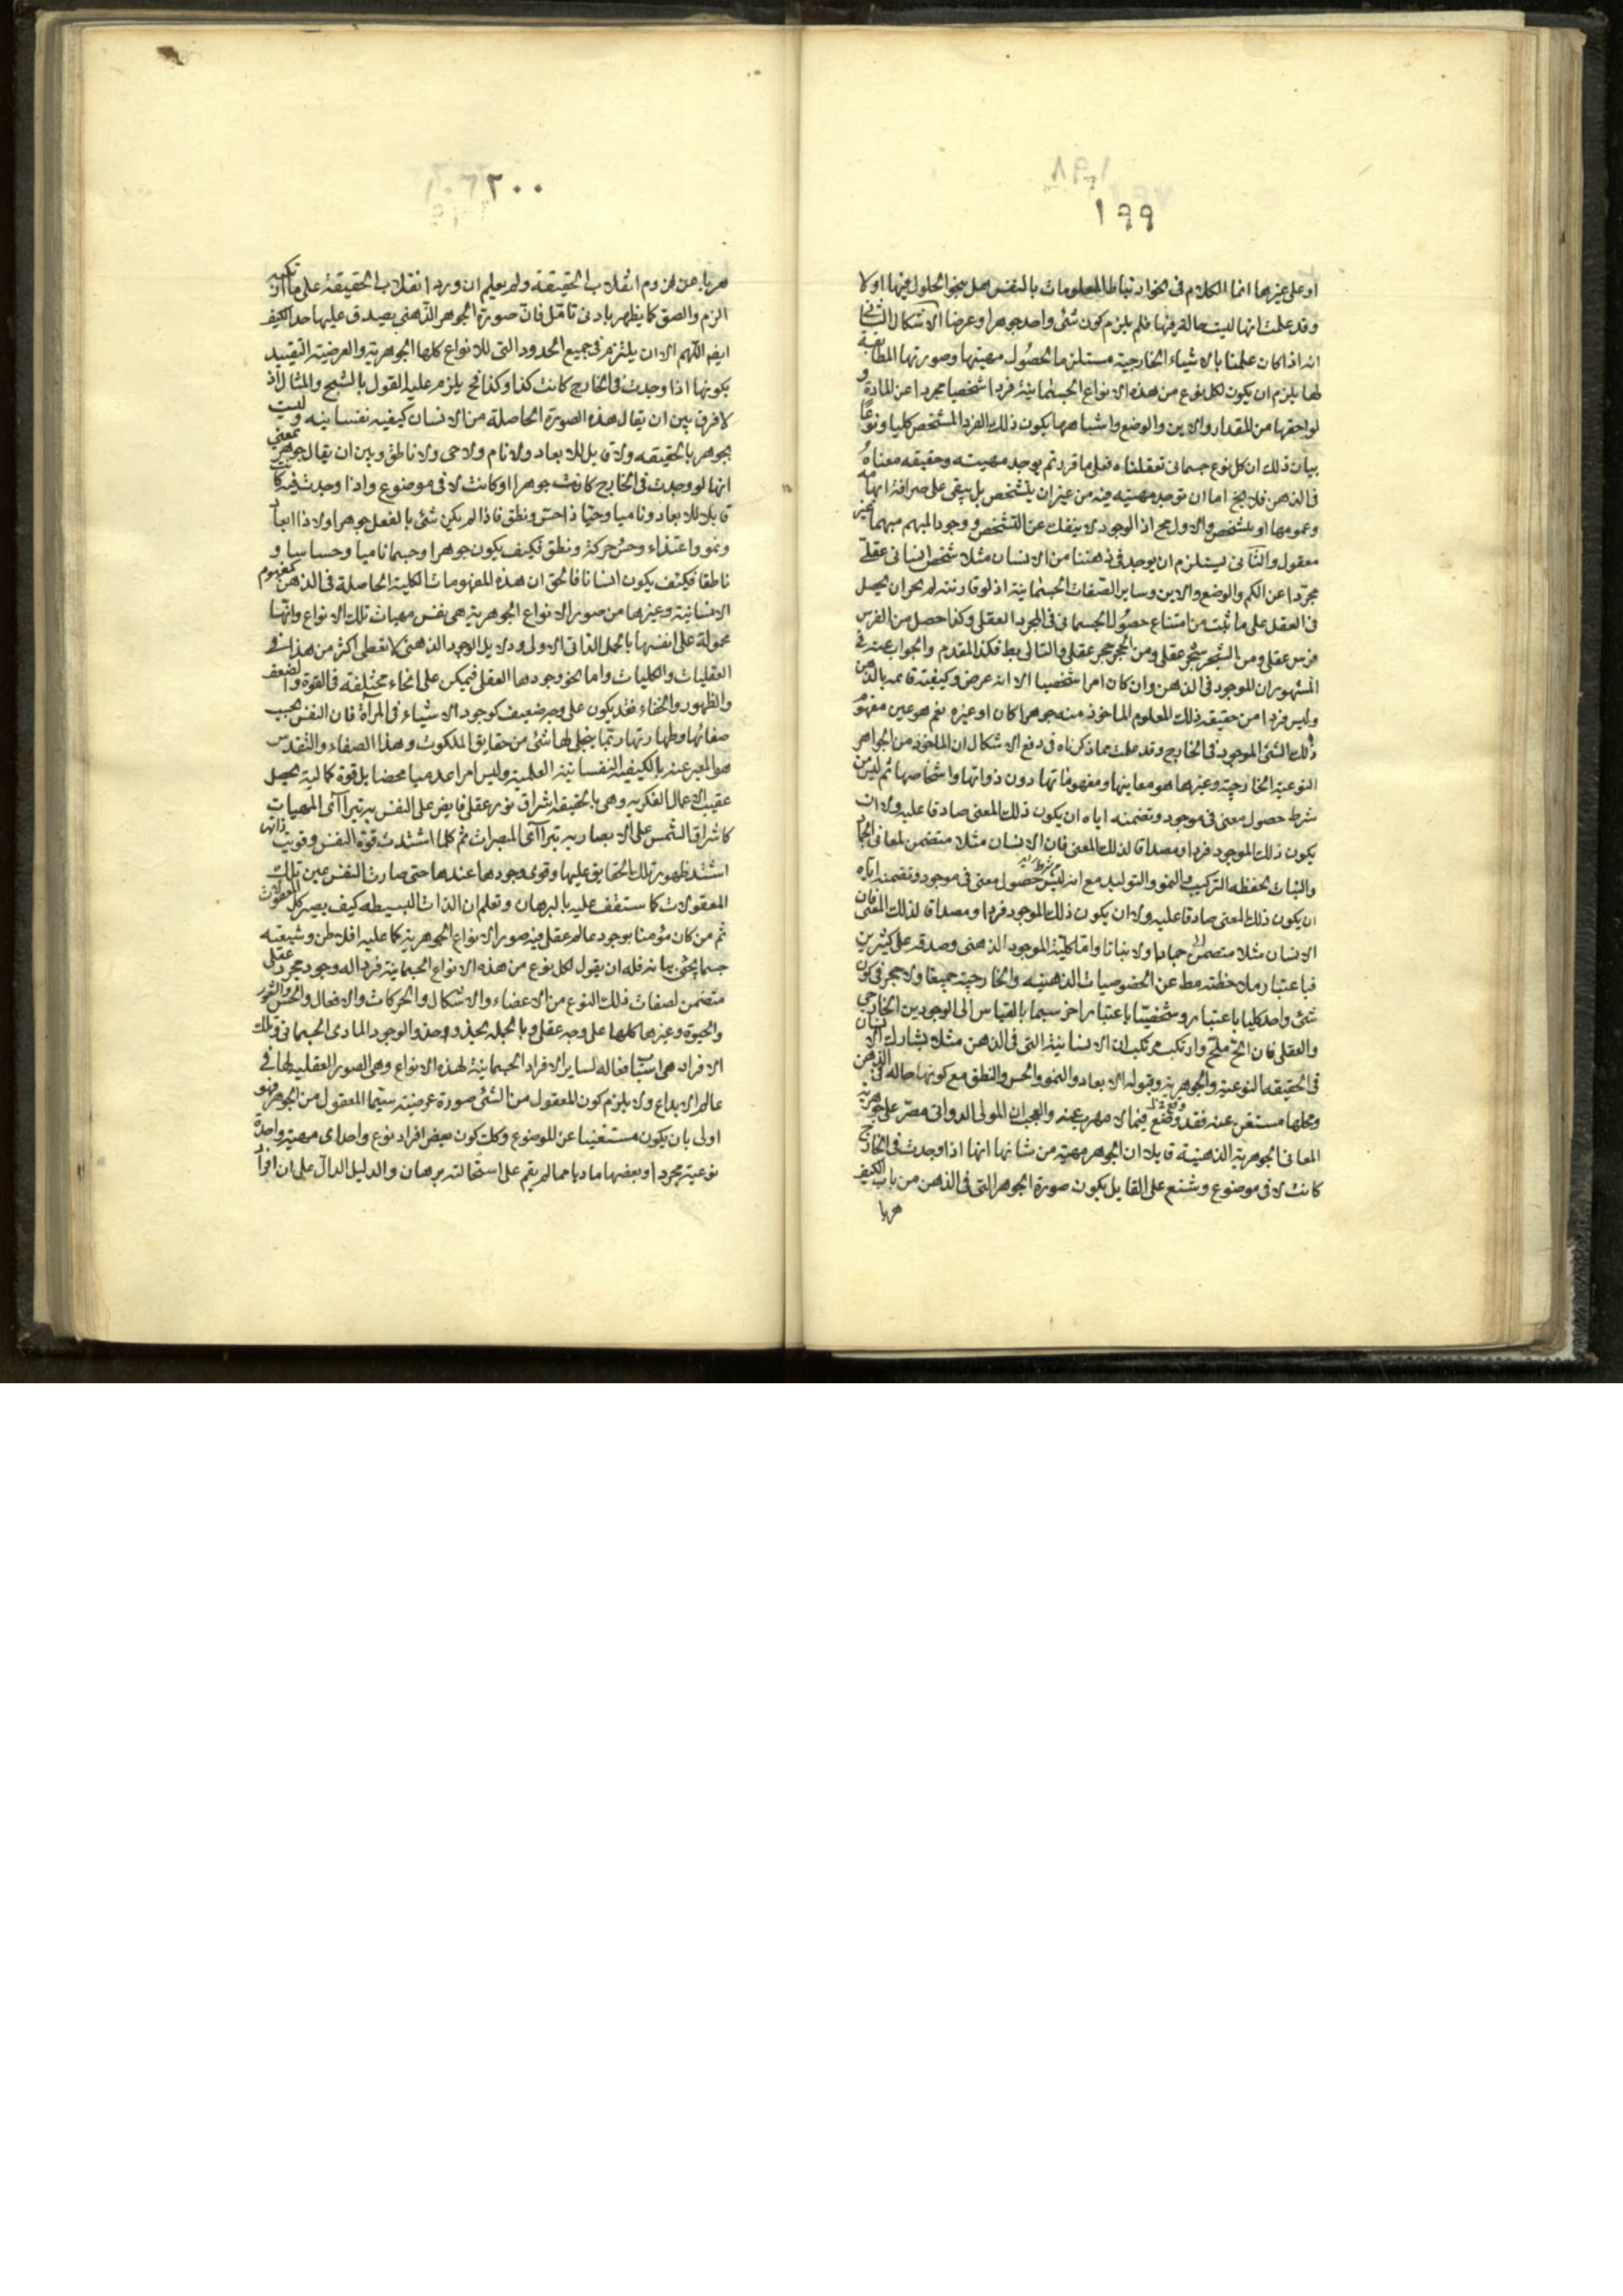 ١٩٩
او على غيرها انما الكلام فى نحو ارتباط المعلومات بالنفس هل بنحو الحلول فيها او لا
وقد علمت انها ليست حالة فيها فلم يلزم كون شئ واحد جوهرا وعرضا الاشكال الثانى
انه اذا كان علمنا بالاشياء الخارجية مستلزما لحصول مهيتها وصورتها المطابقة
لها يلزم ان يكون لكل نوع من هذه الانواع الجسمانية فردا شخصيا مجردا عن المادة و
لواحقها من المقدار والاين والوضع واشباهها يكون ذلك الفرد المشخص كليا ونوعا
بيان ذلك ان كل نوع جسمانى تعقلناه فعلى ما قررتم يوجد مهيته وحقيقة معناه
فى الذهن فلا يخ اما ان توجد مهيته فيه من غير ان يتشخص بل يبقى على صرافة ابهامها
وعمومها او يتشخص والاول مح اذ الوجود لا ينفك عن التشخص ووجود المبهم مبهما غير
معقول والثانى يستلزم ان يوجد فى ذهننا من الانسان مثلا شخص انسانى عقلى
مجردا عن الكم والوضع والاين وساير الصفات الجسمانية اذ لو قارنته لم يجز ان يحصل
فى العقل على ما ثبت من امتناع حصول الجسمانى فى المجرد العقلى وكذا حصل من الفرس
فرس عقلى ومن الشجر شجر عقلى ومن الحجر حجر عقلى والتالى بط فكذا المقدم والجواب عنه فى
المشهور ان الموجود فى الذهن وان كان امرا شخصيا الا انه عرض وكيفية قائمة بالذهن
وليس فردا من حقيقة ذلك المعلوم الماخوذ منه جوهرا كان او غيره نعم هو عين مفهوم
ذلك الشئ الموجود فى الخارج وقد علمت مما ذكرناه فى دفع الاشكال ان الماخوذ من الجواهر
النوعية الخارجية وغيرها هو معاينها ومفهوماتها دون ذواتها واشخاصها ثم ليس من
شرط حصول معنى فى موجود وتضمنه اياه ان يكون ذلك المعنى صادقا عليه ولا ان
يكون ذلك الموجود فردا ومصداقا لذلك المعنى فان الانسان مثلا متضمن لمعانى الجماد
والنبات لحفظه التركيب والنمو والتوليد مع انه ليس شرط حصول معنى فى موجود وتضمنه اياه
ان يكون ذلك المعنى صادقا عليه ولا ان يكون ذلك الموجود فردا ومصداقا لذلك المعنى فان
الانسان مثلا متضمن جمادا ولا نباتا واما كلية الموجود الذهنى وصدقه على كثيرين
فباعتبار ملاحظته مط عن الخصوصيات الذهنية والخارجية جميعا ولا حجر فى كون
شئ واحد كليا باعتبار وشخصيا باعتبار اخر سيما بالقياس الى الوجودين الخارجى
والعقلى فان الح ملح وارتكب مرتكب ان الانسانية التى فى الذهن مثلا يشارك الانسان
فى الحقيقة النوعية والجوهرية وقبوله الابعاد والنمو والحس والنطق مع كونها حالة فى الذهن
ومحلها مستغن عنه فقد وقع فيما لا مهرب عنه والعجب ان المولى الدوانى مصر على جوهرية
المعانى الجوهرية الذهنية قايلا ان الجوهر مهية من شانها انها اذا وجدت فى الخارج
كانت لا فى موضوع وشنع على القايل بكون صورة الجوهر التى فى الذهن من باب الكيف
هربا
٢٠٠
هربا عن لزوم انقلاب الحقيقة ولم يعلم ان ورود انقلاب الحقيقة على ما ارتكبه
الزم والصق كما يظهر بادنى تامل فان صورة الجوهر الذهنى يصدق عليها حد الكيف
ايض اللهم الا ان يلتزم فى جميع الحدود التى للانواع كلها الجوهرية والعرضية التقييد
بكونها اذا وجدت فى الخارج كانت كذا وكذا فح يلزم عليه القول بالشبح والمثال اذ
لا فرق بين ان يقال هذه الصورة الحاصلة من الانسان كيفية نفسانية وليست
بجوهر بالحقيقة ولا قابل للابعاد ولا نام ولا حى ولا ناطق وبين ان يقال جوهر بمعنى
انها لو وجدت فى الخارج كانت جوهرا او كانت لا فى موضوع واذا وجدت فيه كانت
قابلا للابعاد وناميا وحيا ذا حس ونطق فاذا لم يكن شئ بالفعل جوهرا ولا ذا ابعاد
ونمو واغتذاء وحس وحركة ونطق فكيف يكون جوهرا وجسما ناميا وحساسا و
ناطقا فكيف يكون انسانا فالحق ان هذه المفهومات الكلية الحاصلة فى الذهن كمفهوم
الانسانية وغيرها من صور الانواع الجوهرية هى نفس مهيات تلك الانواع وانها
محمولة على انفسها بالحمل الذاتى الاولى ودلايل الوجود الذهنى لا تعطى اكثر من هذا فى
العقليات والكليات واما نحو وجودها العقلى فيمكن على انحاء مختلفة فى القوة والضعف
والظهور والخفاء فقد يكون على وجه ضعيف كوجود الاشياء فى المرآة فان النفس بحسب
صفائها وطهارتها ربما يتجلى لها شئ من حقايق الملكوت وهذا الصفاء والتقدس
هو المعبر عنه بالكيفية النفسانية العلمية وليس امرا عدميا محضا بل قوة كمالية يحصل
عقيب الاعمال الفكرية وهى بالحقيقة اشراق نور عقلى فايض على النفس به تترآآى المهيات
كاشراق الشمس على الابصار به تترآآى المبصرات ثم كلما اشتدت قوة النفس وقويت ذاتها
اشتد ظهور تلك الحقايق عليها وقوى وجودها عندها حتى صارت النفس عين تلك
المعقولات كما ستقف عليه بالبرهان وتعلم ان الذات البسيطة كيف يصير كل المعقولات
ثم من كان مؤمنا بوجود عالم عقلى فيه صور الانواع الجوهرية كما عليه افلاطن وشيعته
حسبما يجئ بيانه فله ان يقول لكل نوع من هذه الانواع الجسمانية فردا له وجود مجرد عقلى
متضمن لصفات ذلك النوع من الاعضاء والاشكال والحركات والافعال والحس والشعور
والحيوة وغيرها كلها على وجه عقلى وبالجملة يحذو حذو الوجود المادى الجسمانى وتلك
الافراد هى اسباب فعالة لساير الافراد الجسمانية لهذه الانواع وهى الصور العقلية لها فى
عالم الابداع ولا يلزم كون المعقول من الشئ صورة عرضية سيما المعقول من الجوهر فهو
اولى بان يكون مستغنيا عن الموضوع وكك كون بعض افراد نوع واحد اى مهية واحدة
نوعية مجردا وبعضها ماديا مما لم يقم على استحالته برهان والدليل الدال على ان افراد